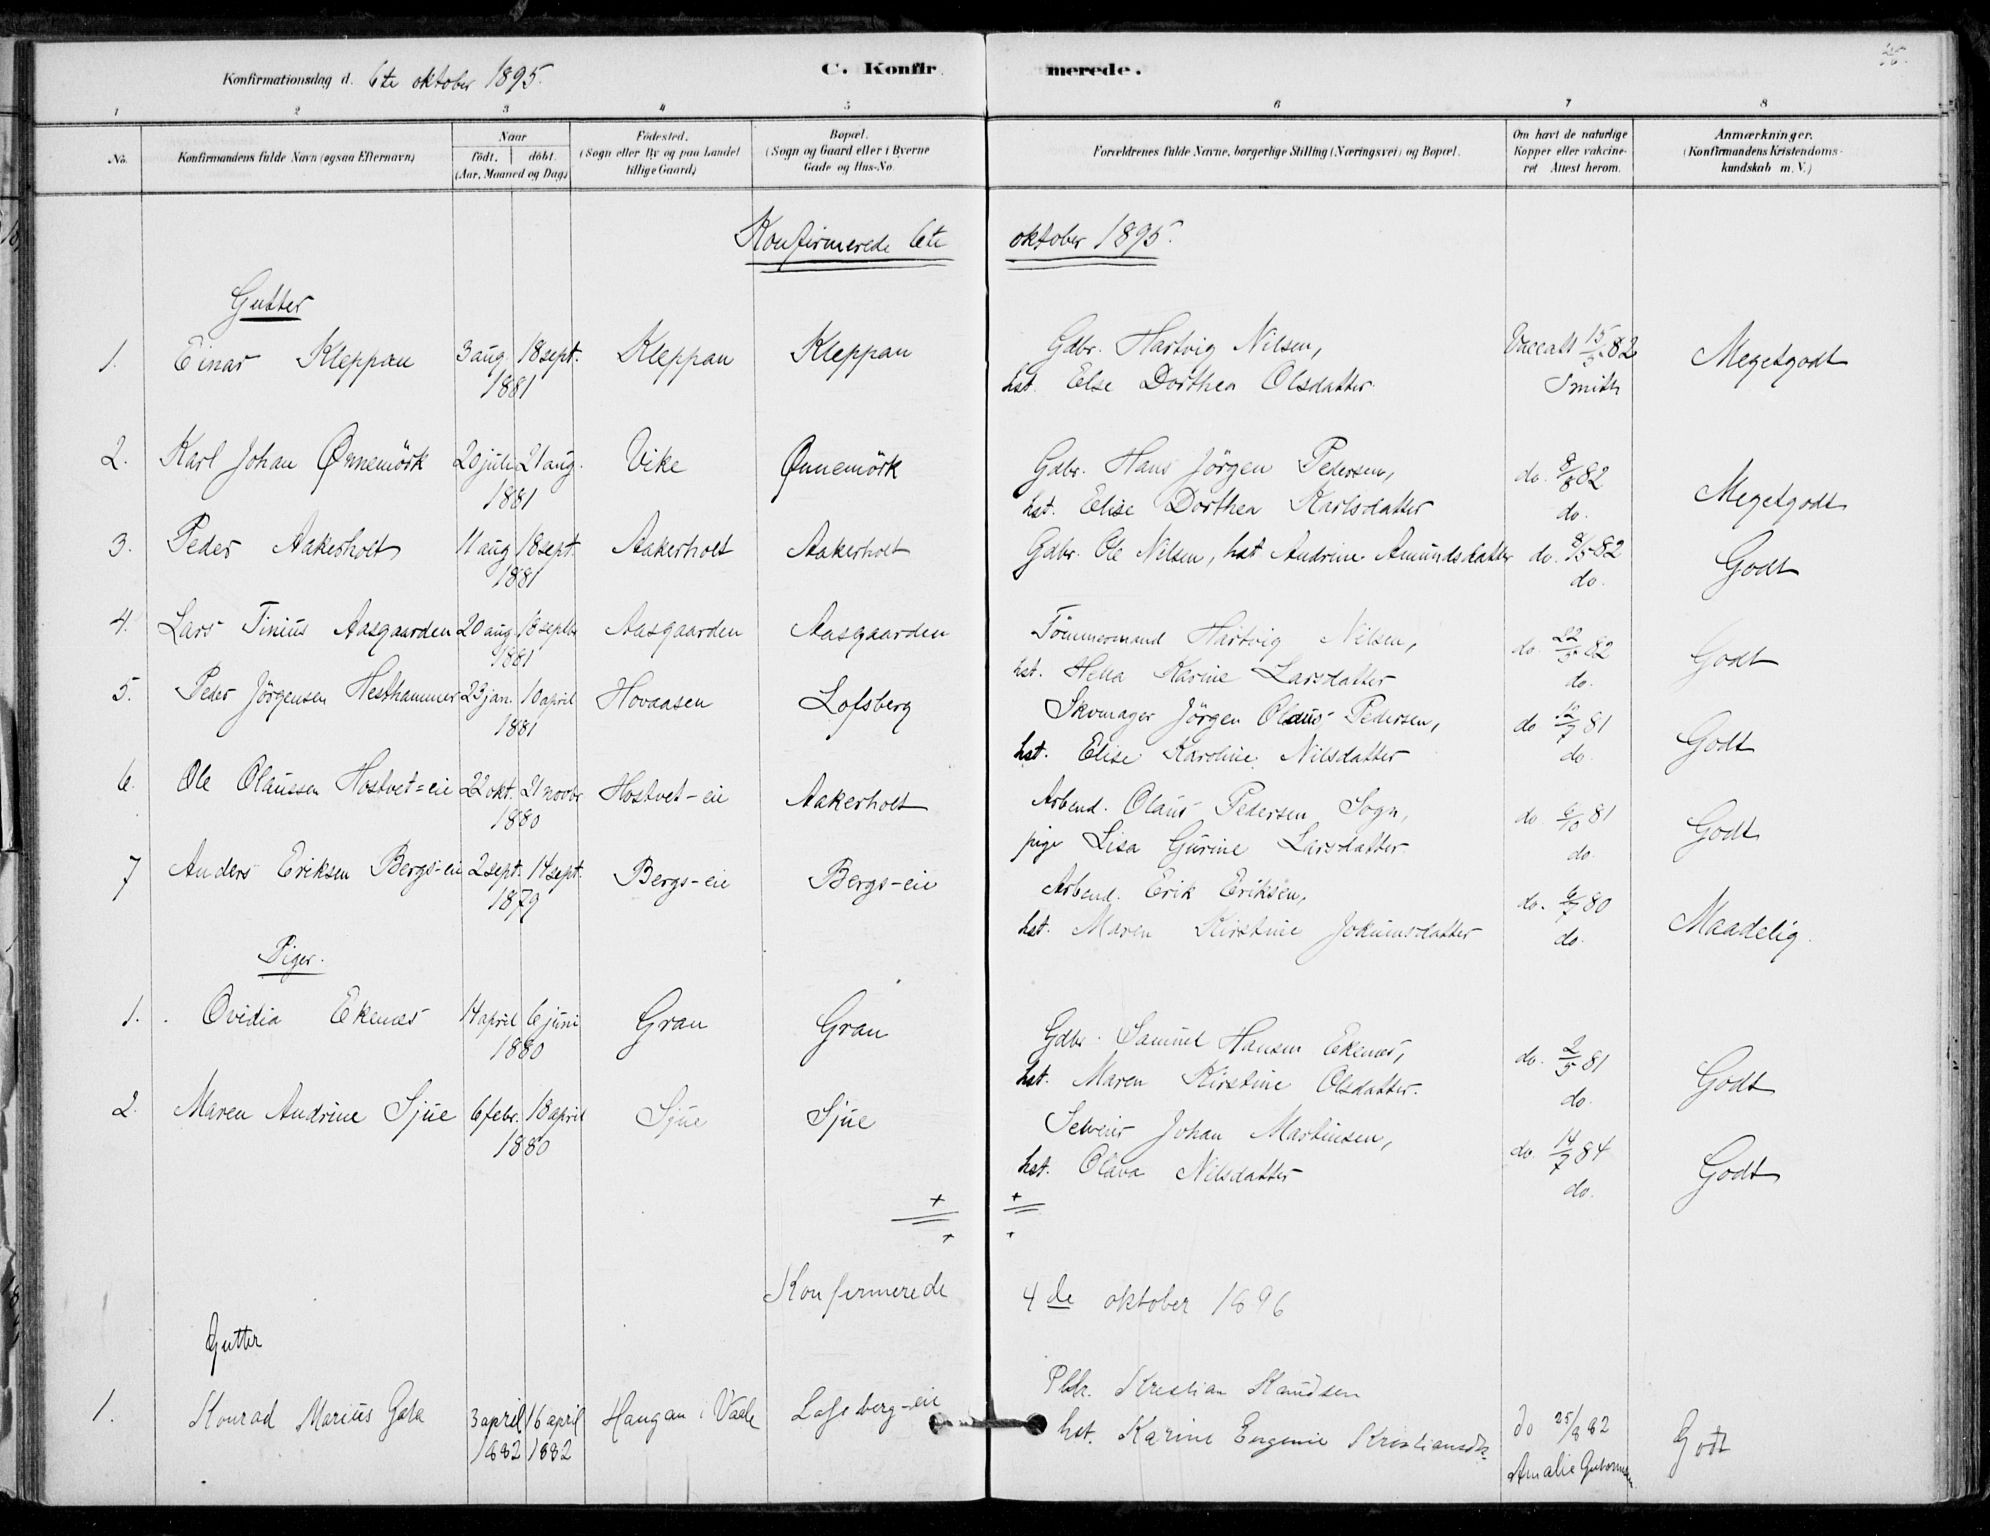 Konfirmationsdag d. 6te oktober 1895.
C. Konfirmerede.
1 2 3 4 5 6 7 8
No. Konfirmandens fulde Navn (ogsaa Efternavn) Naar födt. döbt. (Aar, Maaned og Dag) Födested. (Sogn eller By og paa Landet tillige Gaard) Bopæl. (Sogn og Gaard eller i Byerne Gade og Hus-No. Forældrenes fulde Navne, borgerlige Stilling (Næringsvei) og Bopæl. Om havt de naturlige Kopper eller vakcineret Attest herom. Anmærkninger. (Konfirmandens Kristendomskundskab m. V.)
Konfirmerede 6te oktober 1895.
Gutter
1. Einar Kleppan 3 aug. 18 sept. Kleppan Kleppan Gdbr. Hartvig Nilsen, 15/5 82 Megetgodt
1881 hst. Else Dorthea Olsdatter. Smith
2. Karl Johan Ønnemörk 20 juli 21 aug. Vike Ønnemörk Gdbr. Hans Jörgen Pedersen, do. 8/8 82 Megetgodt
1881 hst. Elise Dorthea Karlsdatter do.
3. Peder Aakerholt 11 aug 18 sept. Aakerholt Aakerholt Gdbr. Ole Nilsen, hst Andrine Amundsdatter do. 8/5 82 Godt
1881 do.
4. Lars Tinius Aasgaarden 20 aug. 18 septbr Aasgaarden Aasgaarden Tömmermand Hartvig Nilsen, do. 22/5 82 Godt
1881 hst. Hella Karine Larsdatter do.
5. Peder Jörgensen Hesthammer 23 jan. 10 april Hovaasen Lofsberg Skomager Jörgen Olaus Pedersen, do 12/7 81 Godt
1881 hst. Elise Karoline Nilsdatter do.
6. Ole Olaussen Hostvet=eie 22 okt. 21 novbr Hostvet-eie Aakerholt Arbeud. Olaus Pedersen Sogn, do. 6/10 81 Godt
1880 pige Lisa Gurine Larsdatter. do.
7 Anders Eriksen Bergs-eie 2 sept. 14 sept. Bergs-eie Bergs-eie Arbeud. Erik Eriksen, do. 6/7 80 Maadelig.
1879 hst. Maren Kirstine Jokumsdatter do.
Piger.
1. Ovidia Ekenæs 14 april 6 juni Gran Gran Gdbr. Samuel Hansen Ekenæs, do. 2/5 81 Godt
1880 hst. Maren Kirstine Olsdatter. do.
2. Maren Andrine Sjue 6 febr. 18 april Sjue Sjue Selveier Johan Martinsen, do. 14/7 84 Godt
1880 hst. Olava Nilsdatter do.
Konfirmerede 4de oktober 1896
Gutter
1. Konrad Marius Gata 3 april 16 april Haugan i Vaale Lofsberg-eie Kristian Knudsen do 25/8 82 Godt
1882 1882 hst. Karine Eugenie Kristiansdtr Amalie